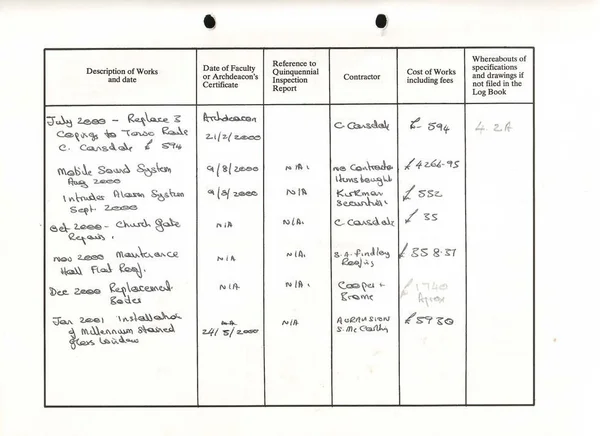 Description of Works
and date
Date of Faculty
or Archdeacon's
Certificate
Reference to
Quinquennial
Inspection
Report
Contractor
Cost of Works
including fees
Whereabouts of
specifications
and drawings if
not filed in the
Log Book
July 2000 - Replace 3
Copings to
C. Carsdale £ 594
Archdeacon
21/2/2000
C. Carsdale
£ 594
4.2A
Mobile Sound System
Aug 2000
9/8/2000
N/A.
no Contractor
£4266-95
Intruder Alarm System
Sept. 2000
9/8/2000
N/A
Kirkman
Securities.
£ 552
Oct 2000 - Church Gate
Repairs.
N/A
N/A.
C. Carsdale
£ 35
Nov 2000
Hall Flat Roof.
N/A
N/A.
S.A. Findley
Roofing
£358.31
Dec 2000 Replacement
N/A
N/A.
Cooper &
£1740
Approx
Jan 2001 Installation
of Millennium Stained
glass Window
24/5/2000
N/A
S. McCarthy
£5930